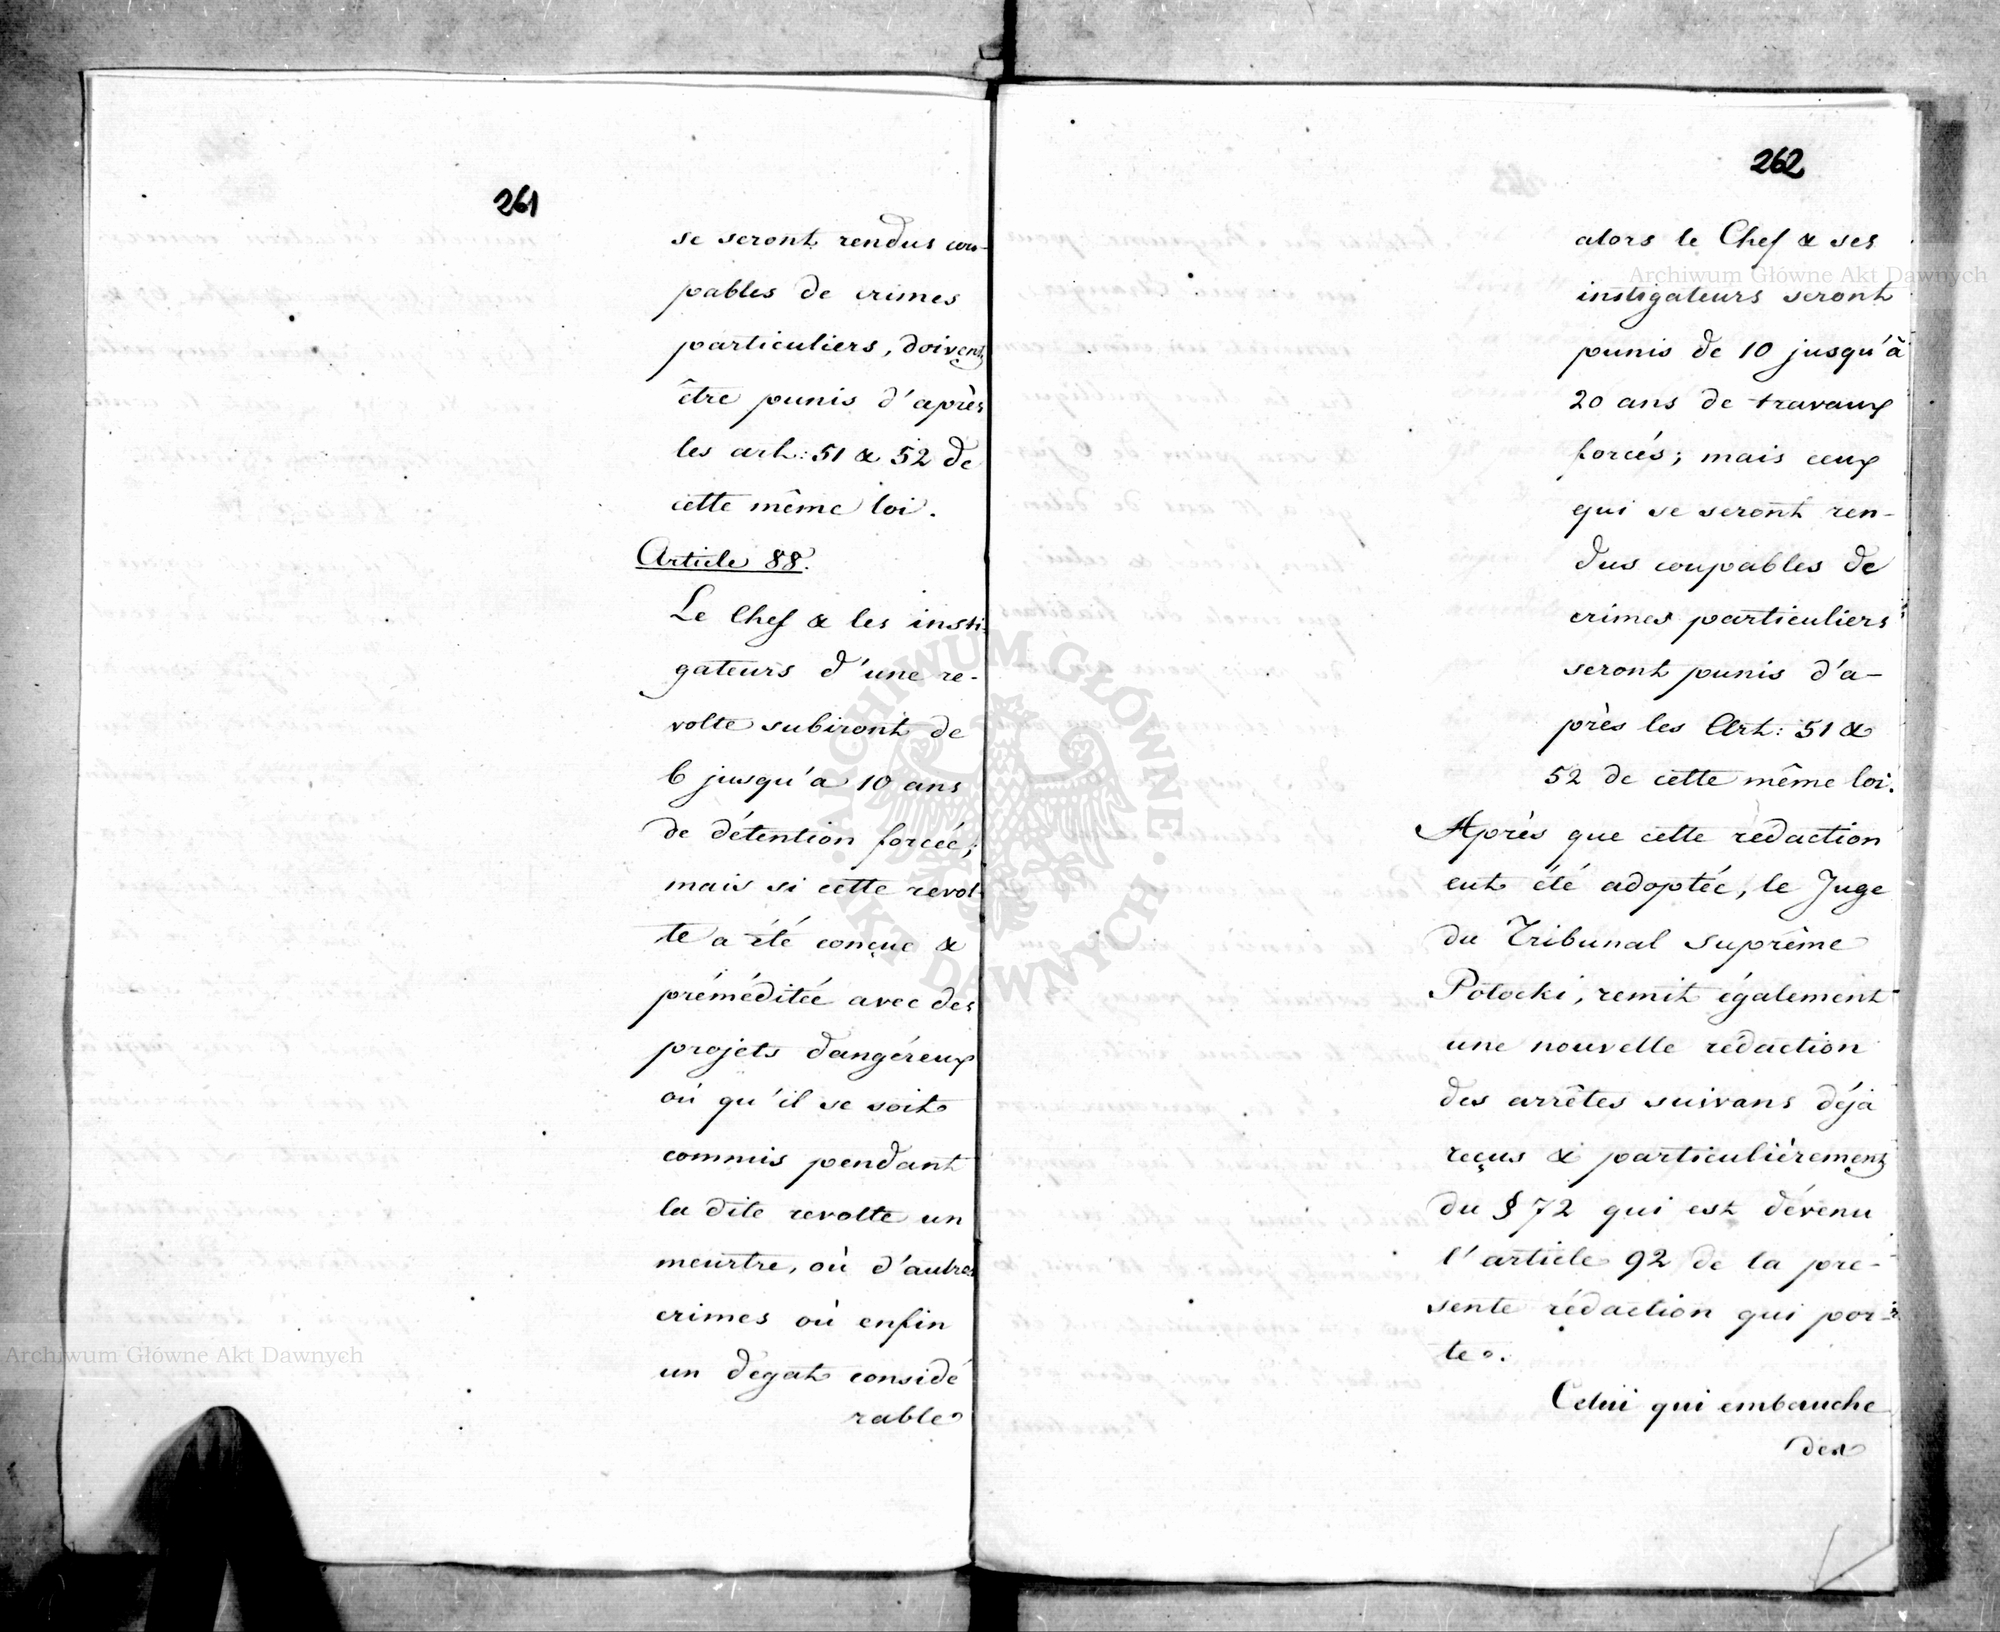 261
se seront rendus cou-
pables de crimes
particuliers, doivent
être punis d'après
les art: 51 & 52 de
cette même loi.
Article 88.
Le Chef & les insti-
gateurs d'une re-
volte subiront de
6 jusqu'a 10 ans
de détention forcée;
mais si cette revol-
te a été conçue &
préméditée avec des
projets dangéreux
où qu'il se soit
commis pendant
la dite revolte un
meurtre, où d'autres
crimes où enfin
un dégat considé
rable
262
alors le Chef & ses
instigateurs seront
punis de 10 jusqu'à
20 ans de travaux
forcés; mais ceux
qui se seront ren-
dus coupables de
crimes particuliers
seront punis d'a-
près les Art: 51 &
52 de cette même loi.
Après que cette redaction
eut été adoptée, le Juge
du Tribunal Suprême
Potocki, remit également
une nouvelle rédaction
des arrêtes suivans déja
reçus & particulièrement
du § 72 qui est dévenu
l'article 92 de la pre-
sente rédaction qui por-
te.
Celui qui embauche
des
Archiwum Główne Akt Dawnych
Archiwum Główne Akt Dawnych
ARCHIWUM GŁÓWNE
AKT DAWNYCH